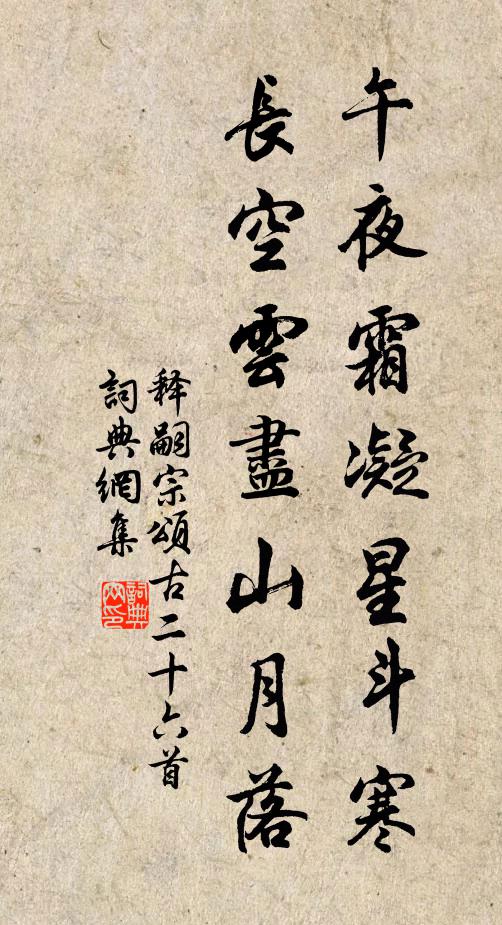 午夜霜凝星斗寒
長空雲盡山月落
释嗣宗頌古二十六首
詞典網集
詞典网印